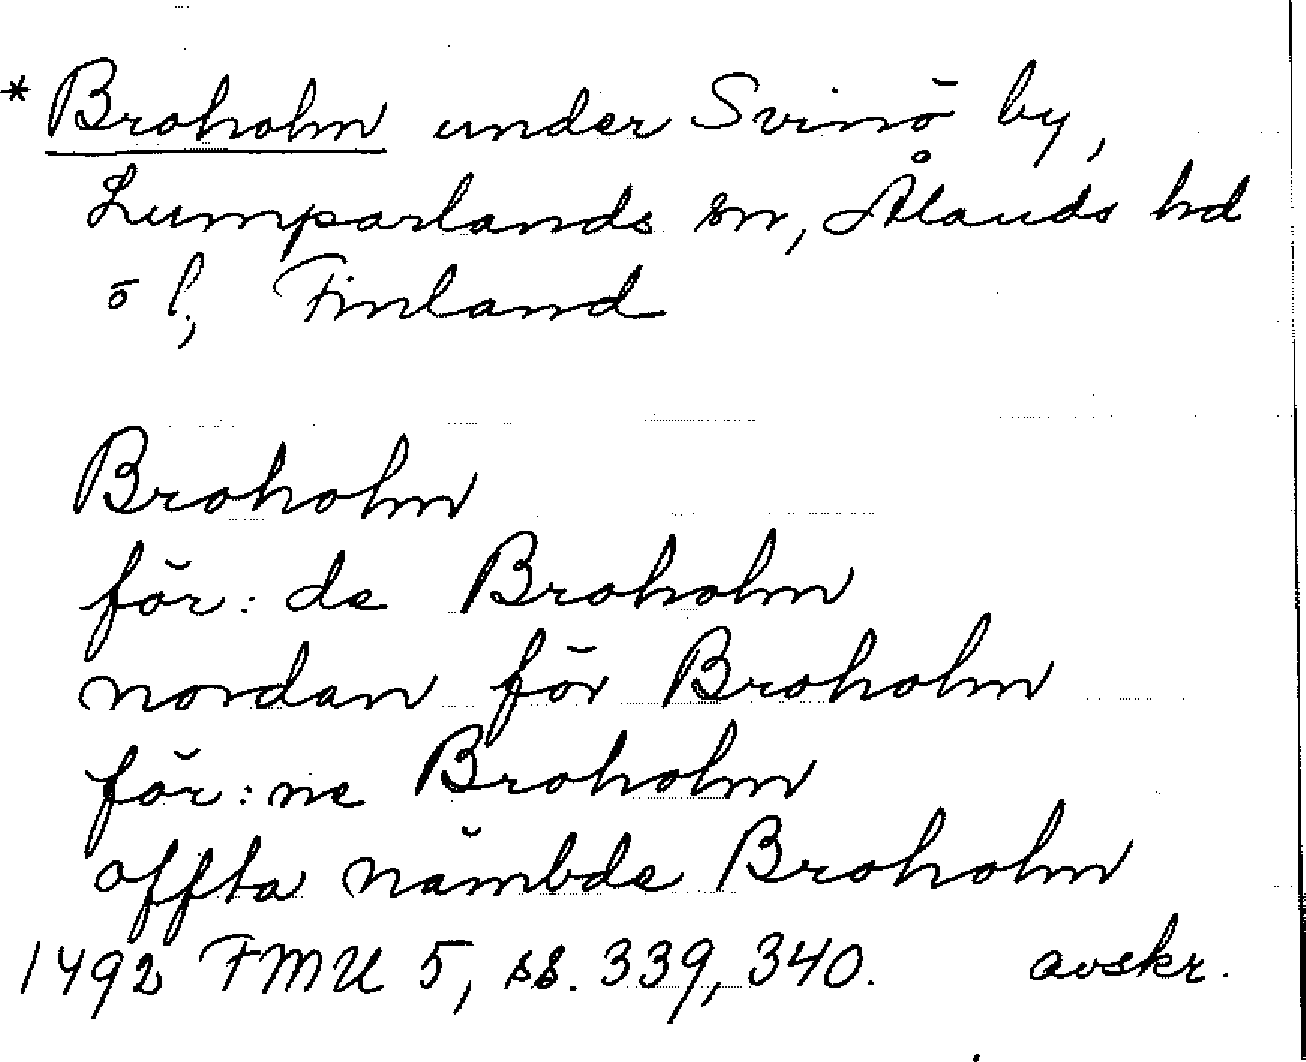 * Broholm under Svinö by,
Lumparlands sn, Ålands hd
ö l, Finland
Broholm
för: de Broholm
nordan för Broholm
för: ne Broholm
offta nämbde Broholm
1492 FMU 5, ss. 339, 340. avskr.